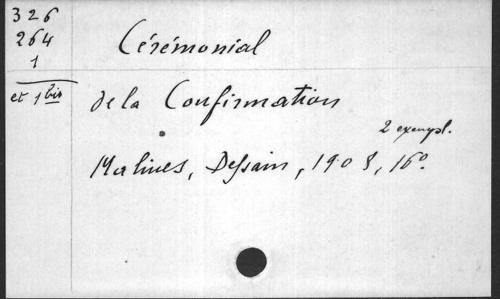 326
264
1
et 1 bis
Cérémonial
de la Confirmation
2 exempl.
Malines, Dessain, 1908, 16º.